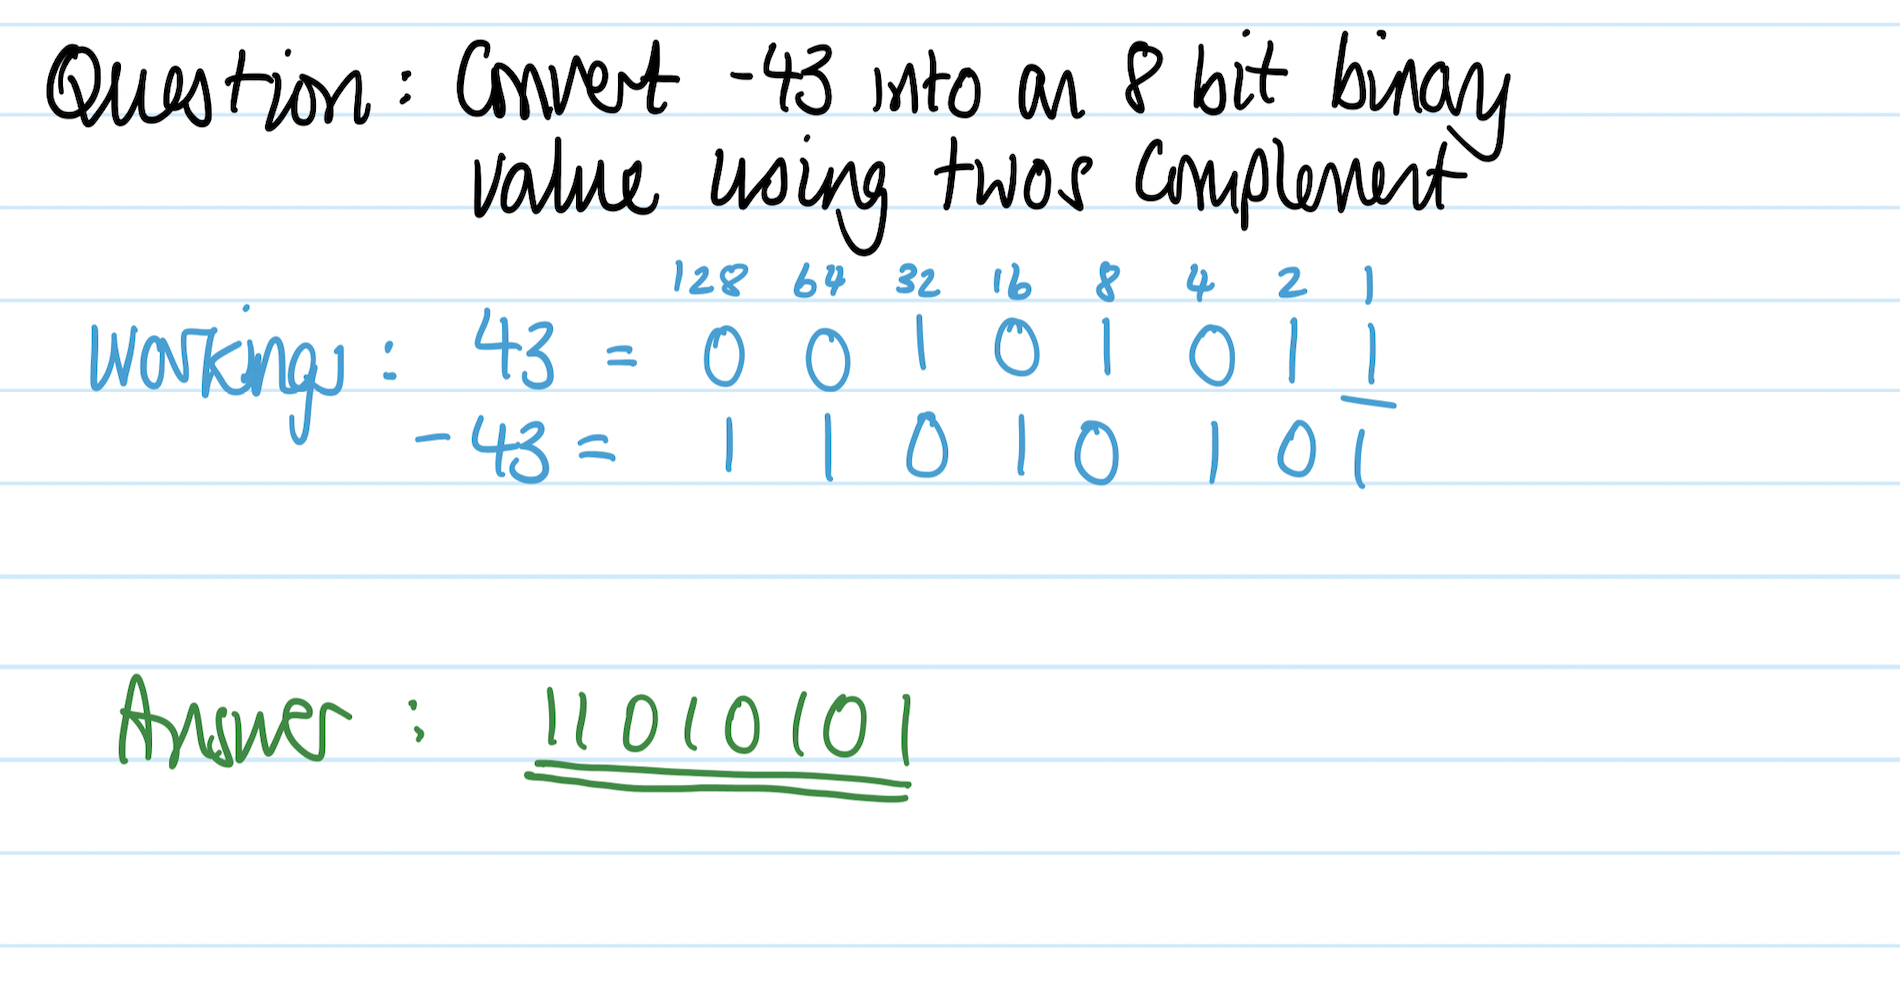 Question: Convert -43 into an 8 bit binary
value using twos complement
128 64 32 16 8 4 2 1
Workings: 43 = 0 0 1 0 1 0 1 1
-43 = 1 1 0 1 0 1 0 1
Answer: 11010101